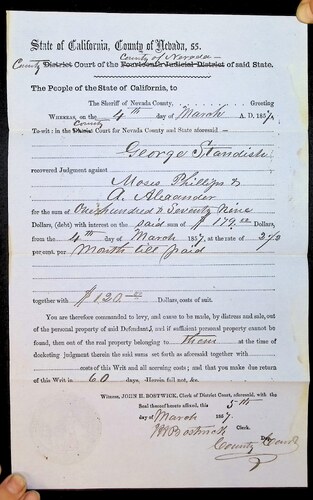 State of California, County of Nevada, ss.
County of Nevada
County District Court of the Fourteenth Judicial District of said State.
The People of the State of California, to
The Sheriff of Nevada County, Greeting
WHEREAS, on the 4th day of March A. D. 1857,
County
To-wit: in the Court for Nevada County and State aforesaid
George Standish
recovered Judgment against
Moses Phillips &
A. Alexander
for the sum of One hundred & Seventy Nine
Dollars, (debt) with interest on the said sum of $ 179.00 Dollars,
from the 4th day of March 1857, at the rate of 3%
per cent. per Month till paid
together with $ 120 Dollars, costs of suit.
You are therefore commanded to levy, and cause to be made, by distress and sale, out
of the personal property of said Defendants, and if sufficient personal property cannot be
found, then out of the real property belonging to them at the time of
docketing judgment therein the said sum set forth as aforesaid together with
costs of this Writ and all accruing costs; and that you make due return
of this Writ in 60 days. Herein fail not, &c.
Witness, JOHN H. BOSTWICK, Clerk of District Court, aforesaid, with the
Seal thereof hereto affixed, this 5th
day of March 1857.
JH Bostwick Clerk.
County Court